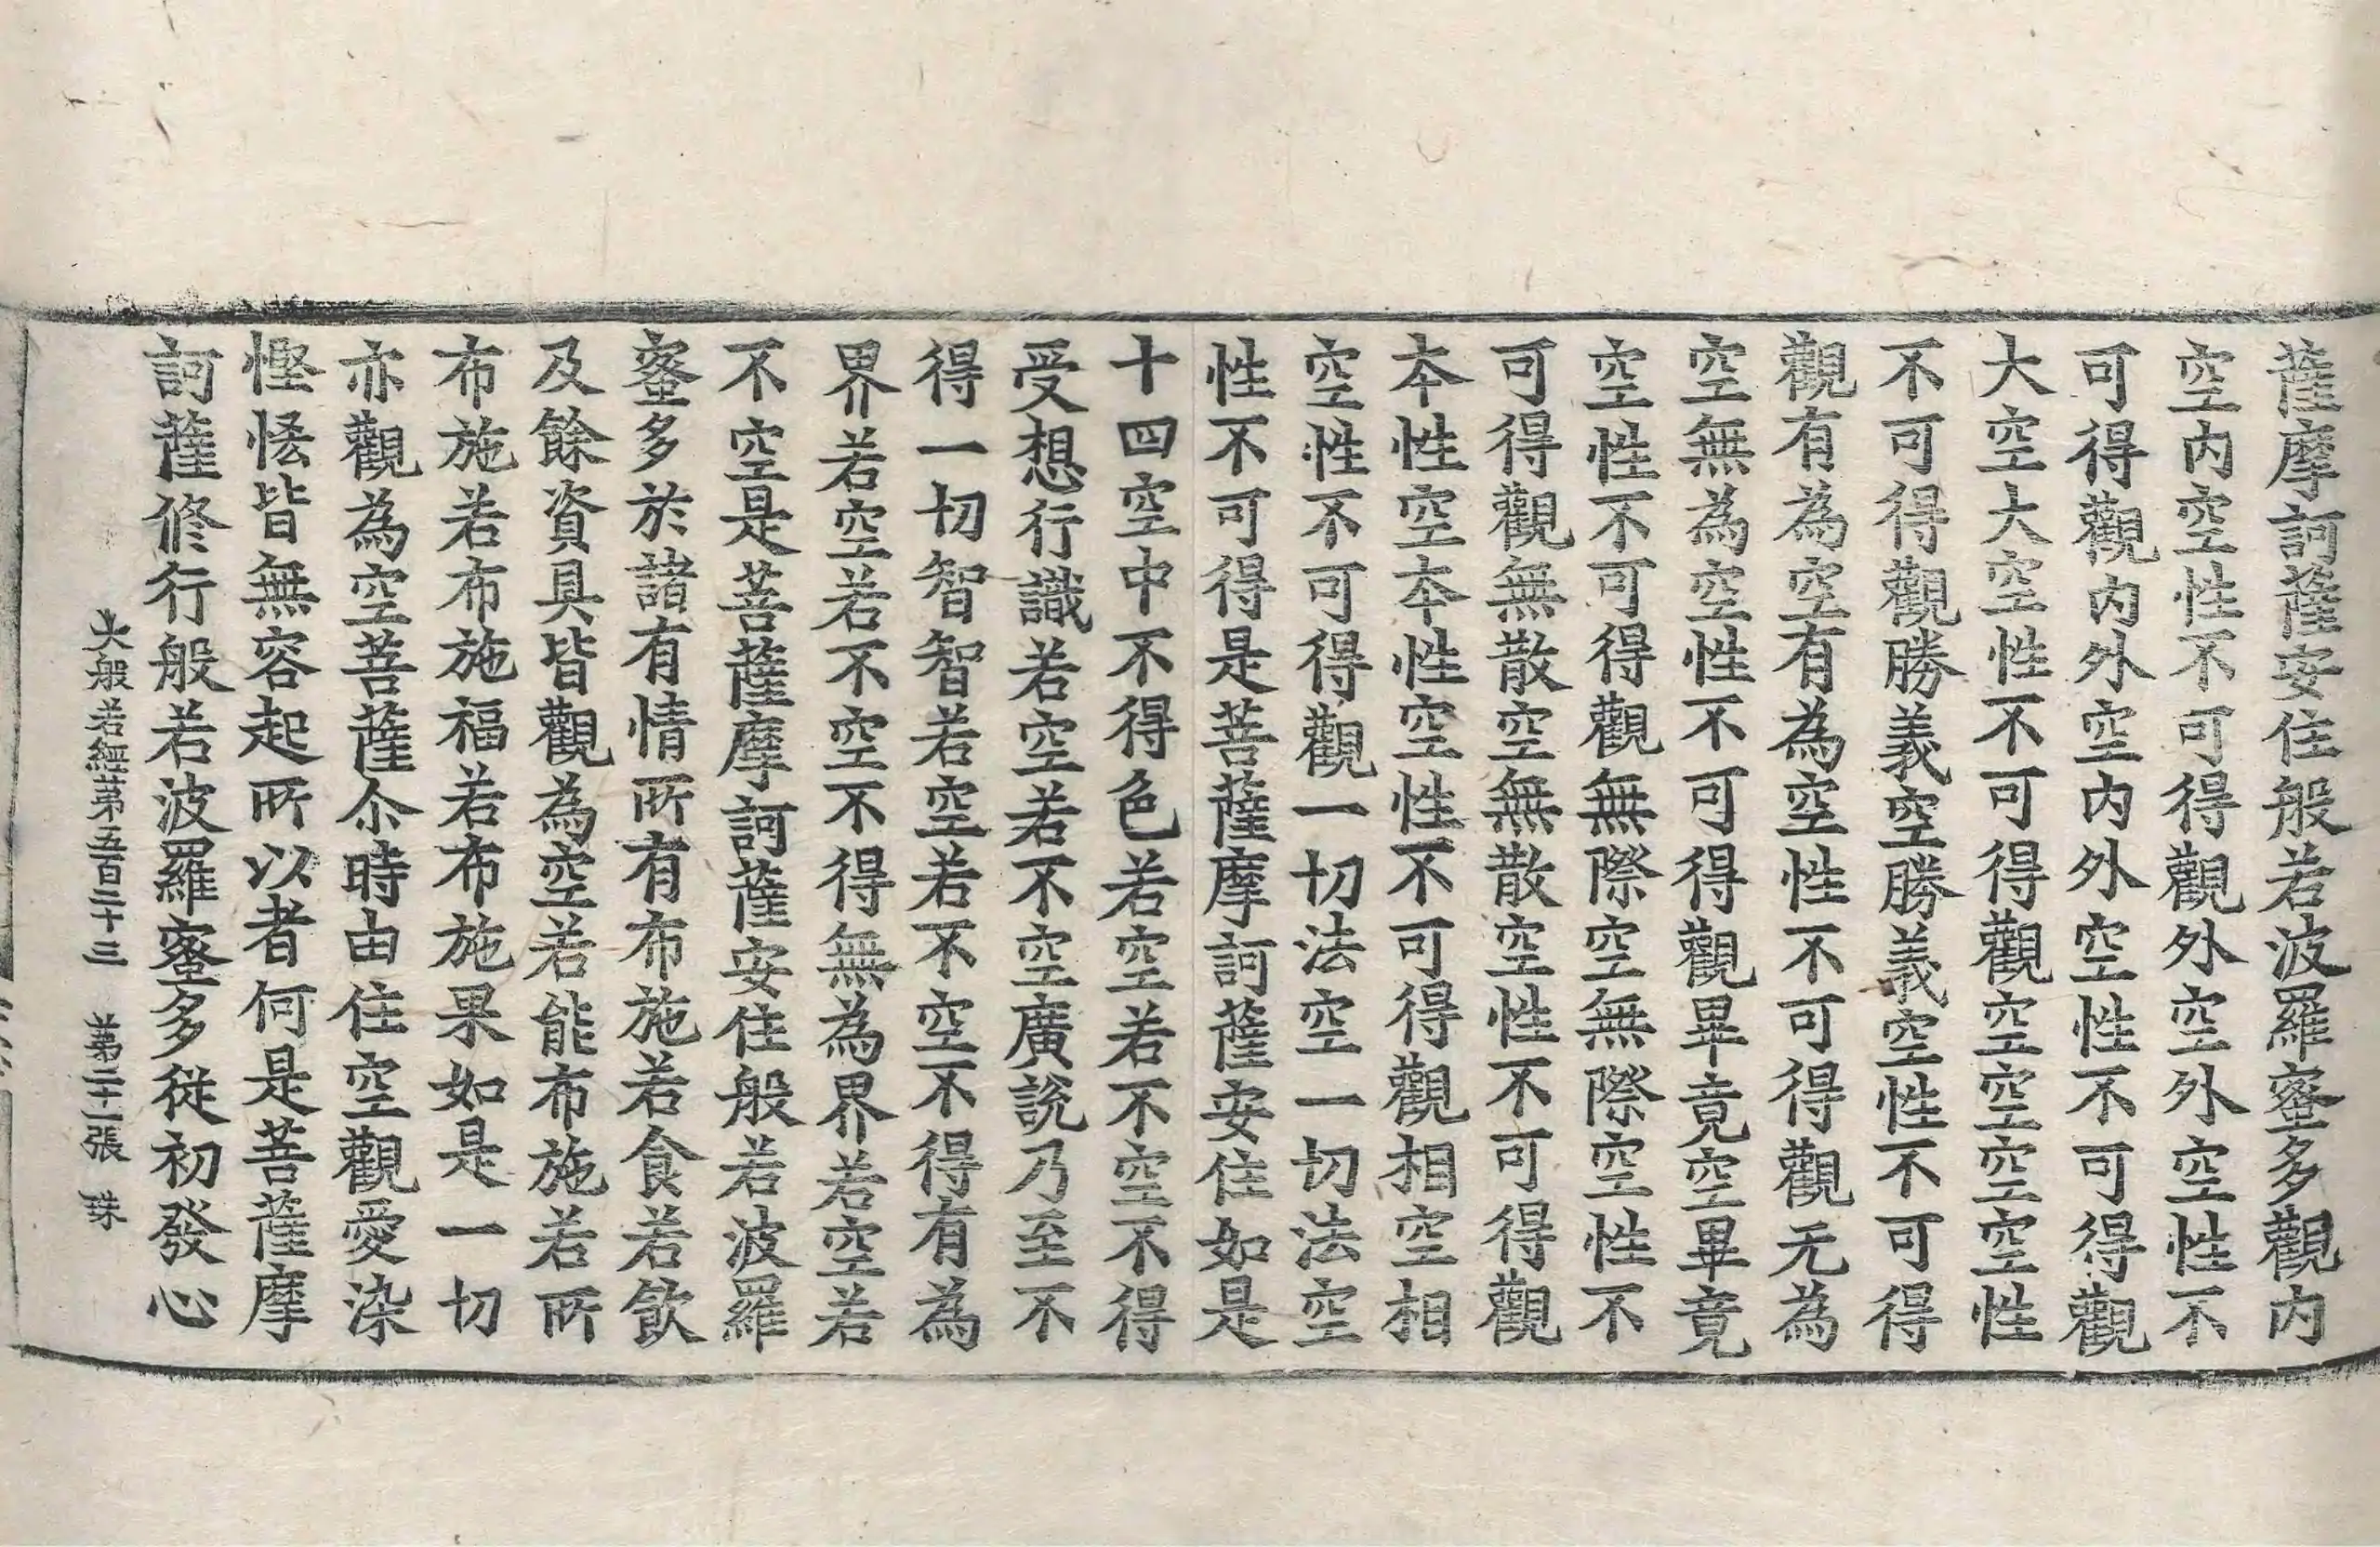 薩摩訶薩安住般若波羅蜜多觀內
空內空性不可得觀外空外空性不
可得觀內外空內外空性不可得觀
大空大空性不可得觀空空空空性
不可得觀勝義空勝義空性不可得
觀有為空有為空性不可得觀无為
空無為空性不可得觀畢竟空畢竟
空性不可得觀無際空無際空性不
可得觀無散空無散空性不可得觀
本性空本性空性不可得觀相空相
空性不可得觀一切法空一切法空
性不可得是菩薩摩訶薩安住如是
十四空中不得色若空若不空不得
受想行識若空若不空廣說乃至不
得一切智智若空若不空不得有為
界若空若不空不得無為界若空若
不空是菩薩摩訶薩安住般若波羅
蜜多於諸有情所有布施若食若飲
及餘資具皆觀為空若能布施若所
布施若布施福若布施果如是一切
亦觀為空菩薩尒時由住空觀愛染
慳悋皆無容起所以者何是菩薩摩
訶薩修行般若波羅蜜多從初發心
大般若經苐五百三十三 苐二十二張 珠